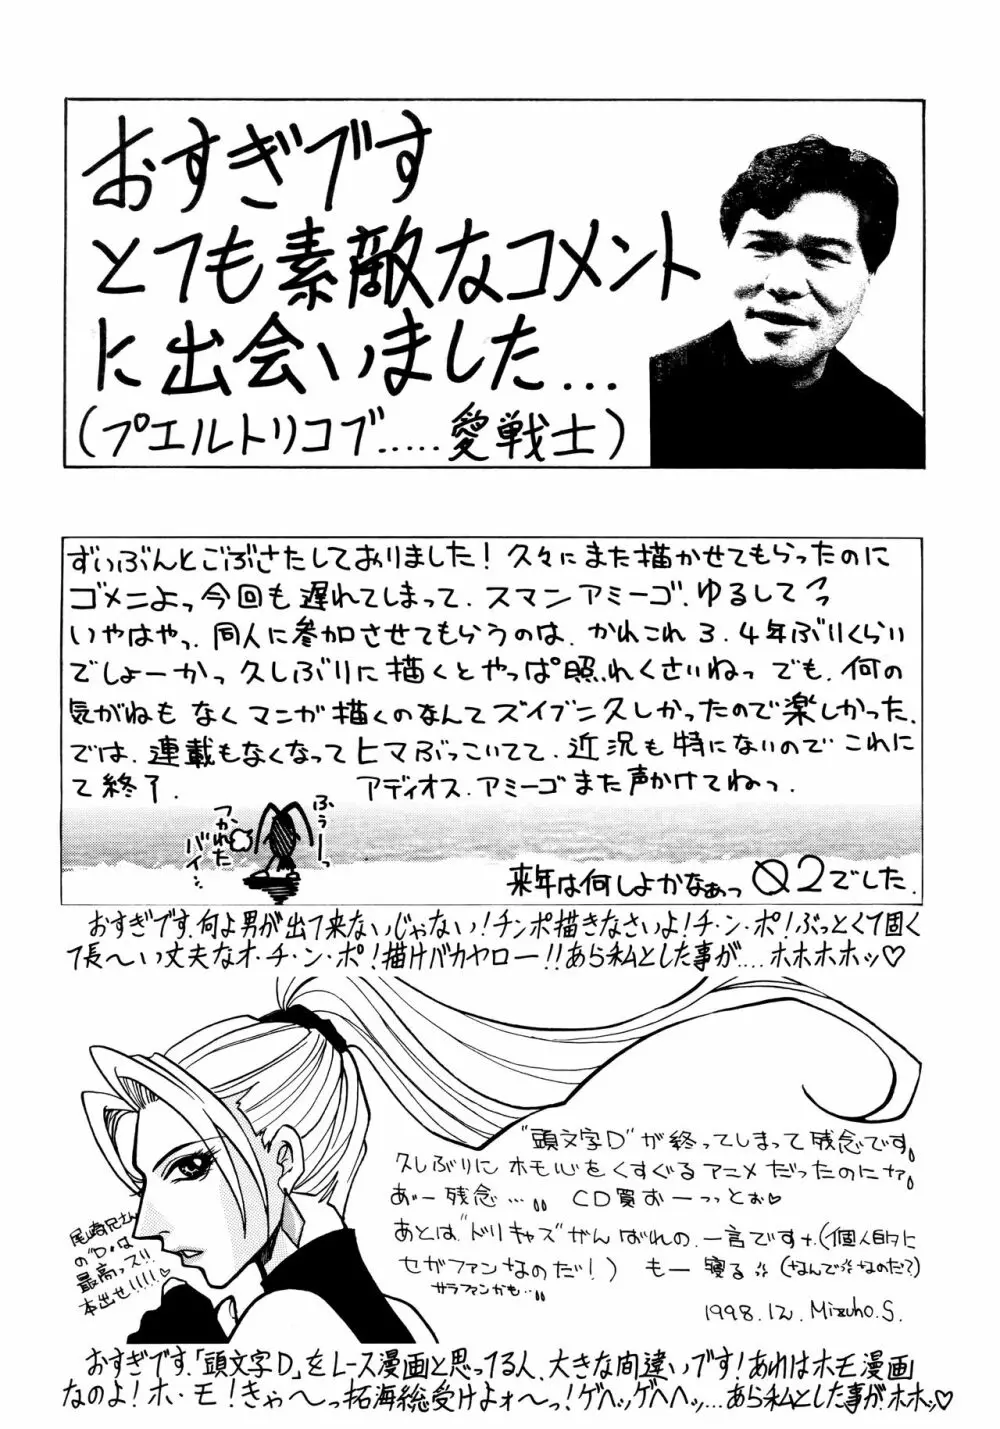 おすぎです
とても素敵なコメント
に出会いました...
(プエルトリコブ.....愛戦士)
ずいぶんとごぶさたしておりました!久々にまた描かせてもらったのに
ゴメニよっ今回も遅れてしまって.スマンアミーゴ.ゆるしてっ
いやはやっ.同人に参加させてもらうのは.かれこれ3.4年ぶりくらい
でしょーかっ久しぶりに描くとやっぱ照れくさいねっでも.何の
気がねもなくマンガ描くのなんてズイブン久しかったので楽しかった.
では.連載もなくなってヒマぶっこいてて.近況も特にないのでこれに
て終了.アディオス.アミーゴまた声かけてねっ.
ふぅーっ
つかれた
バイ...
来年は何しよかなぁっ Ø2でした.
おすぎです.何よ男が出て来ないじゃない!チンポ描きなさいよ!チ・ン・ポ!ぶっとくて固く
て長〜い丈夫なオ・チ・ン・ポ!描けバカヤロー!!あら私とした事が....ホホホホッ♡
"頭文字D"が終ってしまって残念です。
久しぶりにホモ心をくすぐるアニメだったのにナァ。
あー残念... CD買おーっっとぉ♡
あとは"ドリキャス"がんばれの.一言ですナ.(個人的に
セガファンなのだ!) もー寝る (なんで なのだ?)
サラファンかも...
1998.12. Mizuho.S.
尾崎兄さん
の"D"は
最高っス!!
本出せ!!!!♡
おすぎです.「頭文字D」をレース漫画と思ってる人、大きな間違いです!あれはホモ漫画
なのよ!ホ・モ!きゃ〜っ拓海総受けよォ〜っ!ゲヘッゲヘヘッ...あら私とした事が.ホホッ♡